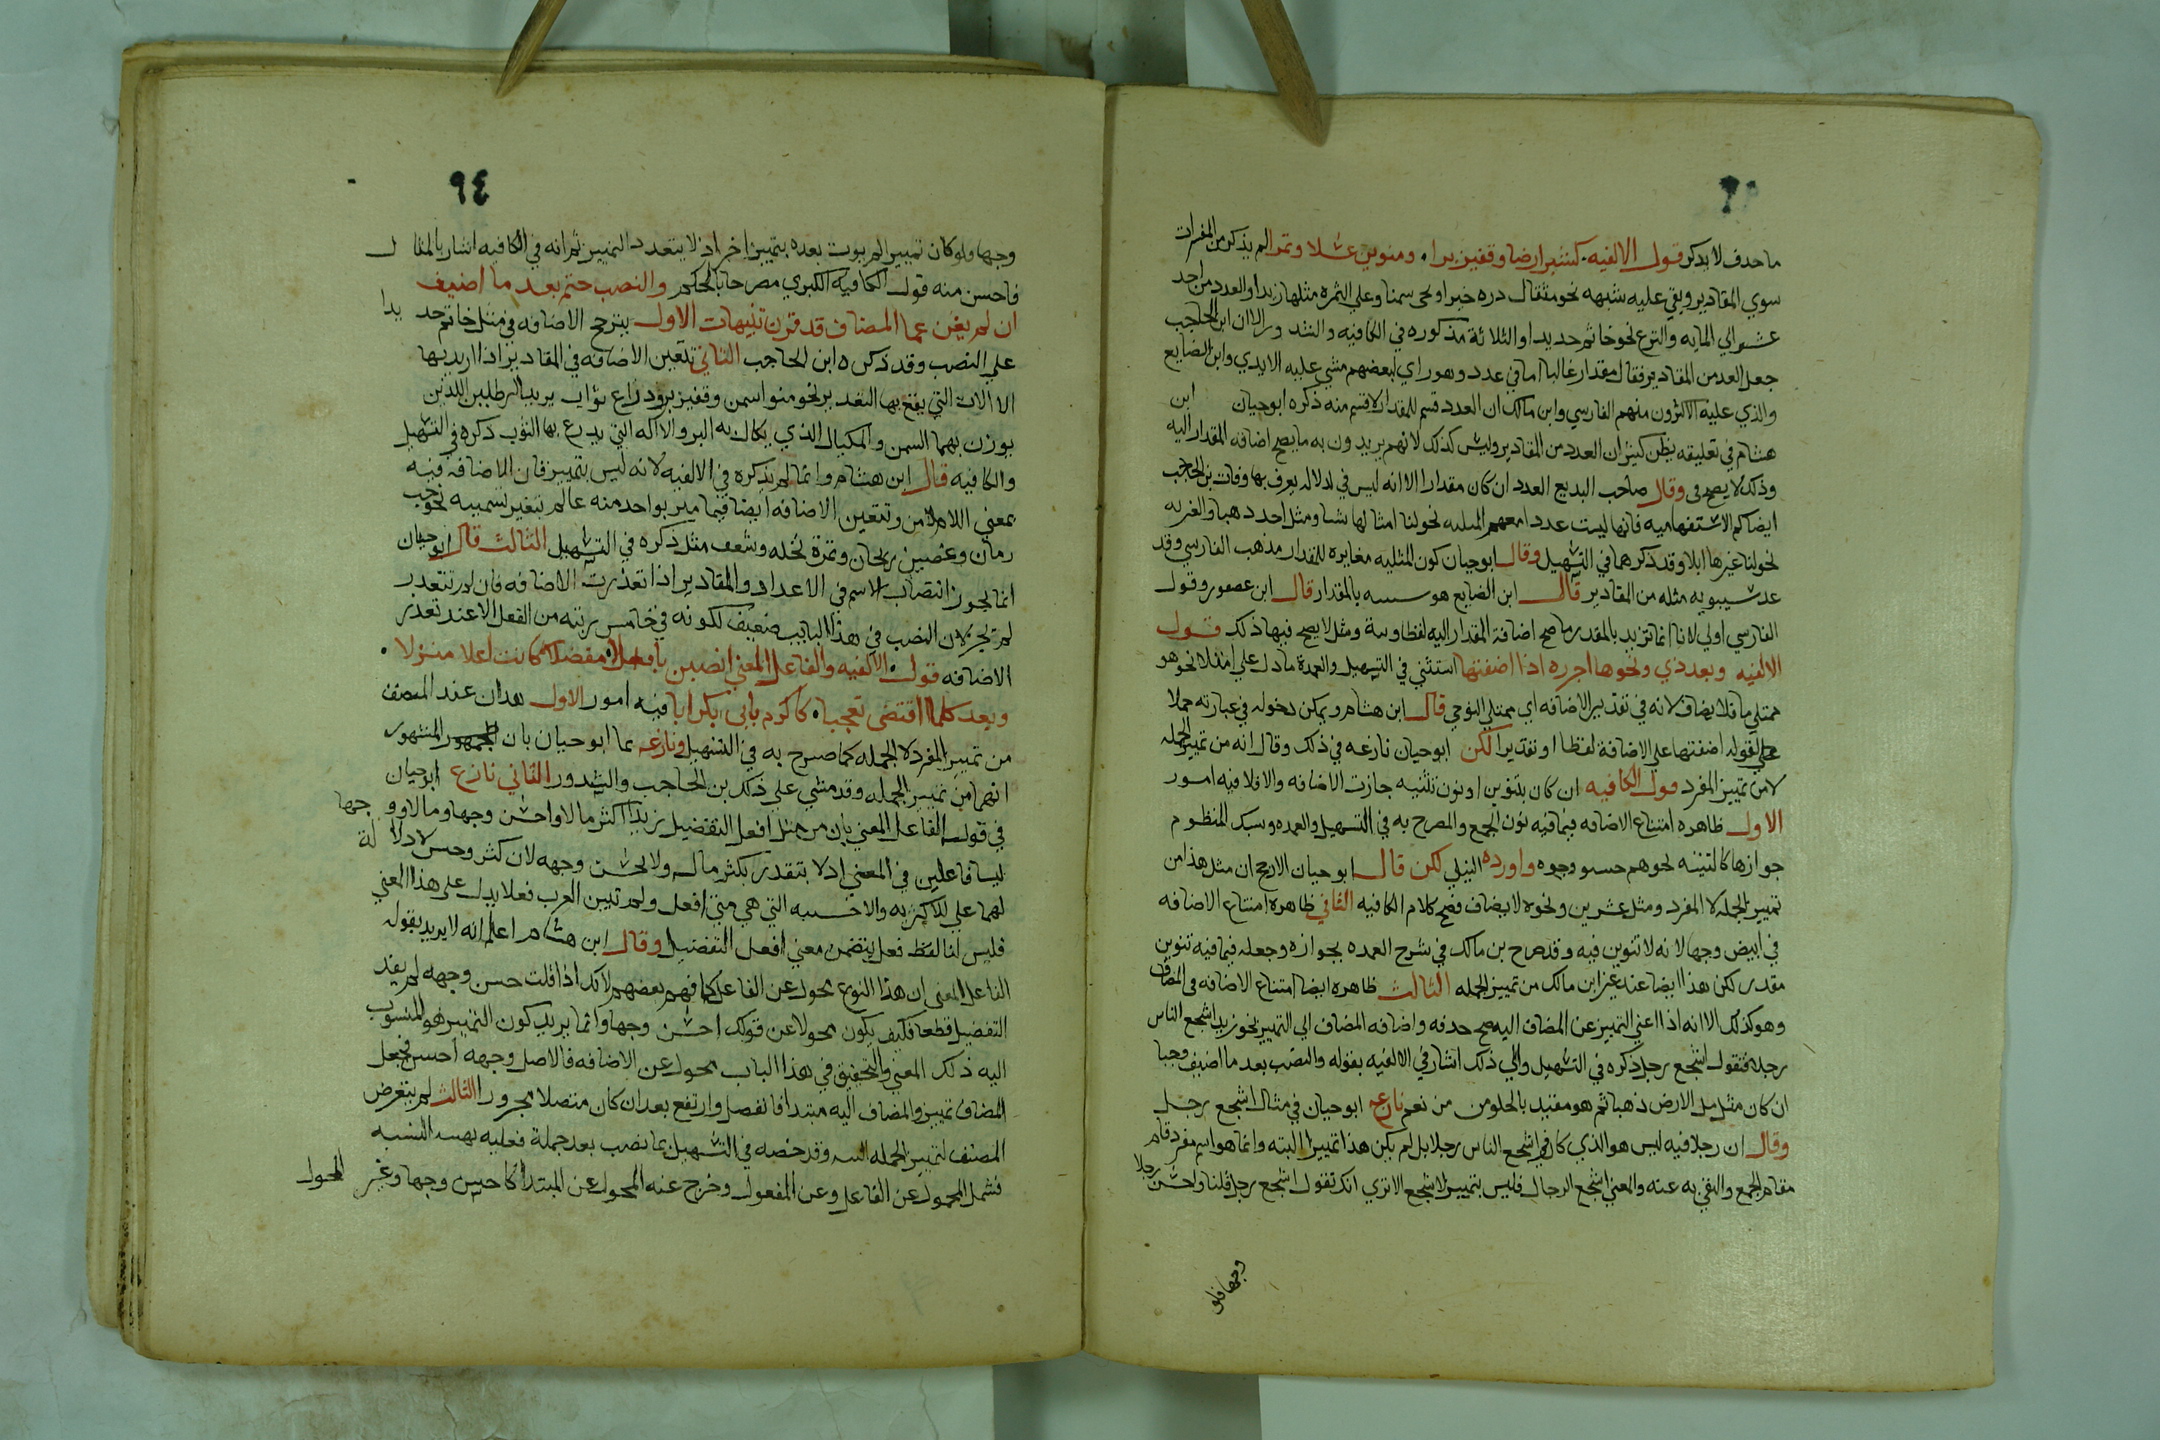 ما حدف لا يدكر قول الالفيه كشبر ارضا وقفيز برا ومنوين عسلا وتمرا لم يذكر من المفردات
سوي المقادير وبقي عليه شبهه نحو مثقال دره خيرا ونحي سمنا وعلي الثمره مثلها زبدا والعدد من احد
عشر الي المايه والنوع نحو خاتم حديدا والثلاثة مذكوره في الكافيه والشذور الا ان ابن الحاجب
جعل العدد من المقادير فقال مقدار غالبا اما في عدد وهو راي لبعضهم مشي عليه الابدي وابن الضايع
والذي عليه الاكثرون منهم الفارسي وابن مالك ان العدد قسم للمقدار لا قسم منه ذكره ابو حيان ابن
هشام في تعليقه يظن كثير ان العدد من المقادير وليس كذلك لانهم يريدون به ما يصح اضافه المقدار اليه
وذلك لا يصح في وقال صاحب البديع العدد ان كان مقدارا الا انه ليس في لدلاله يعرف بها وفات بن الحاجب
ايضا كم الاستفهاميه فانها ليست عددا نحو لنا امثالها شا ومثل احد دهبا والغيريه
نحو لنا غيرها ابلا وقد ذكرهما في التسهيل وقال ابو حيان كون المثليه مغايره للمقدار مذهب الفارسي وقد
عد سيبويه مثله من المقادير قال ابن الضايع هو بالمقدار قال ابن عصفور وقول
الفارسي اولي لانا انما نريد بالمقدر ما صح اضافة المقدار اليه لفظا ومثل لا يصح فيها ذلك قول
الالفيه وبعد ذي ونحوها اجرره اذا اضفتها استثني في التسهيل والعمدة ما دل علي امتلا نحو هو
ممتلي ما فلا يضاف لانه في تقدير الاضافه اي ممتلي النوحي قال ابن هشام ويمكن دخوله في عبارته حملا
علي لقوله اضفتها علي الاضافة لفظا او تقديرا لكن ابو حيان نازعه في ذلك وقال انه من تمييز الجمله
لا من تمييز المفرد قول الكافيه ان كان بتنوين او نون تثنيه جازت الاضافه والا فلا فيه امور
الاول ظاهره امتناع الاضافه فيما فيه نون الجمع والمصرح به في التسهيل والعمده وسبك المنظوم
جوازها كالتثنيه نحو هم حسنو وجوه واورده النيلي لكن قال ابو حيان الارجح ان مثل هذا من
تمييز الجمله لا المفرد ومثل عشرين ونحوه لا يضاف فصح كلام الكافيه الثاني ظاهره امتناع الاضافه
في ابيض وجها لانه لا تنوين فيه وقد صرح بن مالك في شرح العمده بجوازه وجعله فيما فيه تنوين
مقدر لكن هذا ايضا عند غير ابن مالك من تمييز الجمله الثالث ظاهره ايضا امتناع الاضافه في المضاف
وهو كذلك الا انه اذا اغني التمييز عن المضاف اليه صح حدفه واضافه المضاف الي التمييز نحو زيد اشجع الناس
رجلا فتقول اشجع رجل ذكره في التسهيل والي ذلك اشار في الالفيه بقوله والنصب بعد ما اضيف وجبا
ان كان مثل مل الارض ذهبا ثم هو مقيد بالخلو من من نعم نازعه ابو حيان في مثال اشجع رجل
وقال ان رجلا فيه ليس هو الذي كان في اشجع الناس رجلا بل لم يكن هذا تمييزا البته وانما هو اسم مفرد قام
مقام الجمع والتقي به عنه والمعني اشجع الرجال فليس بتمييز لاشجع الا تري انك تقول اشجع رجل قلنا واحسن رجلا
وجها فلو
٩٤
وجها ولو كان تمييزا لم يوت بعده بتمييز اخر اذ لا يتعدد التمييز ثم انه في الكافيه اشار بالمثال
فاحسن منه قول الكافيه الكبري مصرحا بالحكم والنصب حتم بعد ما اضيف
ان لم يغن عما المضاف قد قرن تنبيهات الاول يترجح الاضافه في مثل خاتم حديدا
علي النصب وقد ذكره ابن الحاجب الثاني تتعين الاضافه في المقادير اذا اريد بها
الالات التي يقع بها التقدير نحو منوا سمن وقفيز بر وذراع ثوب يريد الرطلين اللذين
يوزن بهما السمن والمكيال الذي يكال به البر والاله التي يدرع بها الثوب ذكره في التسهيل
والكافيه قال ابن هشام وانما لم يذكره في الالفيه لانه ليس بتمييز فان الاضافه فيه
بمعني اللام لا من وتتعين الاضافه ايضا فيما ميز بواحد منه عالم تتغير تسميته نحو حب
رمان وغصين ريحان وتمرة نخله وسعف مثل ذكره في التسهيل الثالث قال ابو حيان
انما يجوز انتصاب الاسم في الاعداد والمقادير اذا تعذرت الاضافه فان لم تتعدر
لم يجز لان النصب في هذا الباب ضعيف لكونه في خامس رتبه من الفعل الا عند تعذر
الاضافه قول الالفيه والفاعل المعني انصبن بافعلا مفضلا كانت اعلا منزلا
وبعد كلما اقتضي تعجبا كاكرم بابي بكر ابا فيه امور الاول هدان عند المصنف
من تمييز المفرد لا الجمله كما صرح به في التسهيل ونازعه بما ابو حيان بان المشهور
انهما من تمييز الجمله وقد مشي علي ذلك بن الحاجب والشدور الثاني نازع ابو حيان
في قوله الفاعل المعني بان من مثل افعل التفضيل زيد اكثر مالا واحسن وجها وما لا ووجها
ليسا فاعلين في المعني اذ لا يتقدر بكثر مال ولا يحسن وجهه لان كثر وحسن لا دلالة
لهما علي للاكثريه والاحسنيه التي هي مني افعل ولم تبين العرب فعلا يدل علي هذا المعني
فليس لفا لفظ فعل يتضمن معني افعل التفضيل وقال ابن هشام اعلم انه لا يريد بقوله
الفاعل المعني ان هذا النوع محول عن الفاعل كما فهم بعضهم لانك اذا قلت حسن وجهه لم يفد
التفضيل قطعا فكيف يكون محولا عن قولك احسن وجها وانما يريد كون التمييز هو المنسوب
اليه ذلك المعني والتحقيق في هذا الباب محول عن الاضافه فالاصل وجهه احسن فجعل
المضاف تمييز والمضاف اليه مبتدا فانفصل وارتفع بعد ان كان متصلا مجرورا الثالث لم يتعرض
المصنف لتمييز الجمله وقد خصه في التسهيل بما نصب بعد جملة فعليه بهده النسبه
فشمل المحول عن الفاعل وعن المفعول وخرج عنه المحول عن المبتدا كاحسن وجها وغير المحول